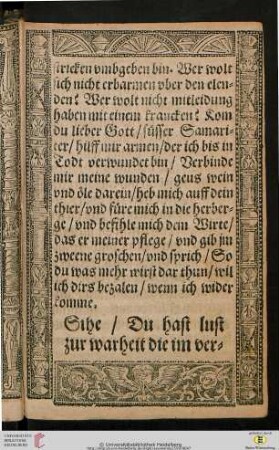 stricken vmbgeben bin. Wer wolt
sich nicht erbarmen vber den elen-
den? Wer wolt nicht mitleidung
haben mit einem krancken? Kom
du lieber Gott / süsser Samari-
ter / hilff mir armen / der ich bis in
Todt verwundet bin / Verbinde
mir meine wunden / geus wein
vnd öle darein / heb mich auff dein
thier / vnd füre mich in die herber-
ge / vnd befihle mich dem Wirte /
das er meiner pflege / vnd gib jm
zweene groschen / vnd sprich / So
du was mehr wirst dar thun / wil
ich dirs bezalen / wenn ich wider
komme.
Sihe / Du hast lust
zur warheit die im ver-
UNIVERSITÄTS-
BIBLIOTHEK
HEIDELBERG
© Universitätsbibliothek Heidelberg